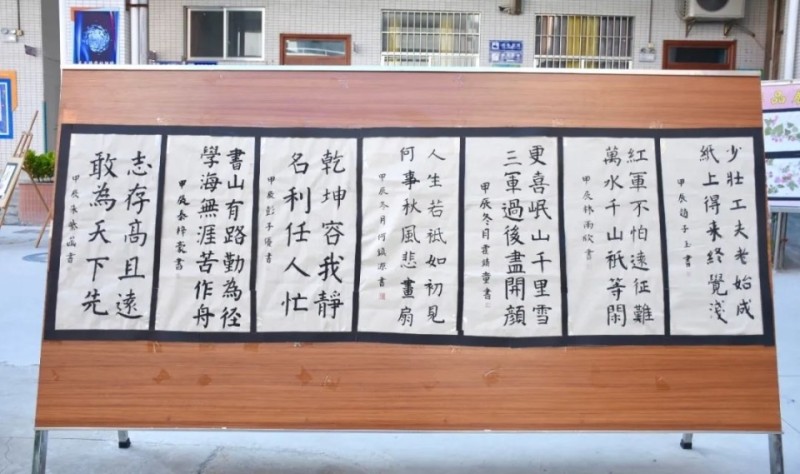 少壯工夫老始成
紙上得来終覺淺
甲辰 子玉書
紅軍不怕遠征難
萬水千山祇等閑
甲辰林雨欣書
更喜岷山千里雪
三軍過後盡開顔
甲辰冬月霍 書
人生若祇如初見
何事秋風悲畫扇
甲辰冬月何 源書
乾坤容我靜
名利任人忙
甲辰彭子優書
書山有路勤為徑
學海無涯苦作舟
甲辰秦梓豪書
志存高且遠
敢為天下先
甲辰朱紫涵書